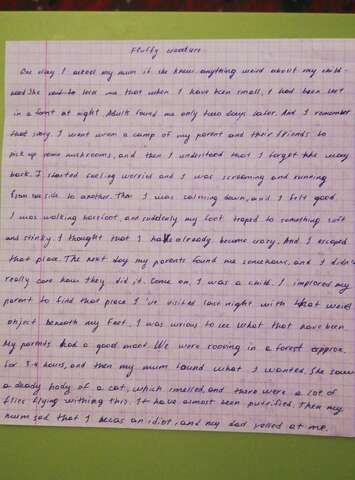 Fluffy creature.
One day I asked my mum if she knew anything weird about my child-
hood. She told me that when I have been small, I had been lost
in a forest at night. Adults found me only two days later. And I remember
that story. I went even a camp of my parent and their friends to
pick up some mushrooms, and then I understood that I forgot the way
back. I started feeling worried and I was screaming and running
from one side to another. Then I was calming down, and I felt good.
I was walking barefoot, and suddenly my foot traped to something soft
and stinky. I thought that I have already become crazy. And I escaped
that place. The next day my parents found me somehow, and I didn't
really care how they did it. Come on, I was a child. I implored my
parent to find that place I've visited last night with that weird
object beneath my feet. I was curious to see what that have been.
My parents had a good mood. We were rooving in a forest approx.
for 3-4 hours, and then my mum found what I wanted. She saw
a deady body of a cat, which smelled, and there were a lot of
flies flying withing this. It have almost been putrified. Then my
mum sad that I was an idiot, and my dad yelled at me.